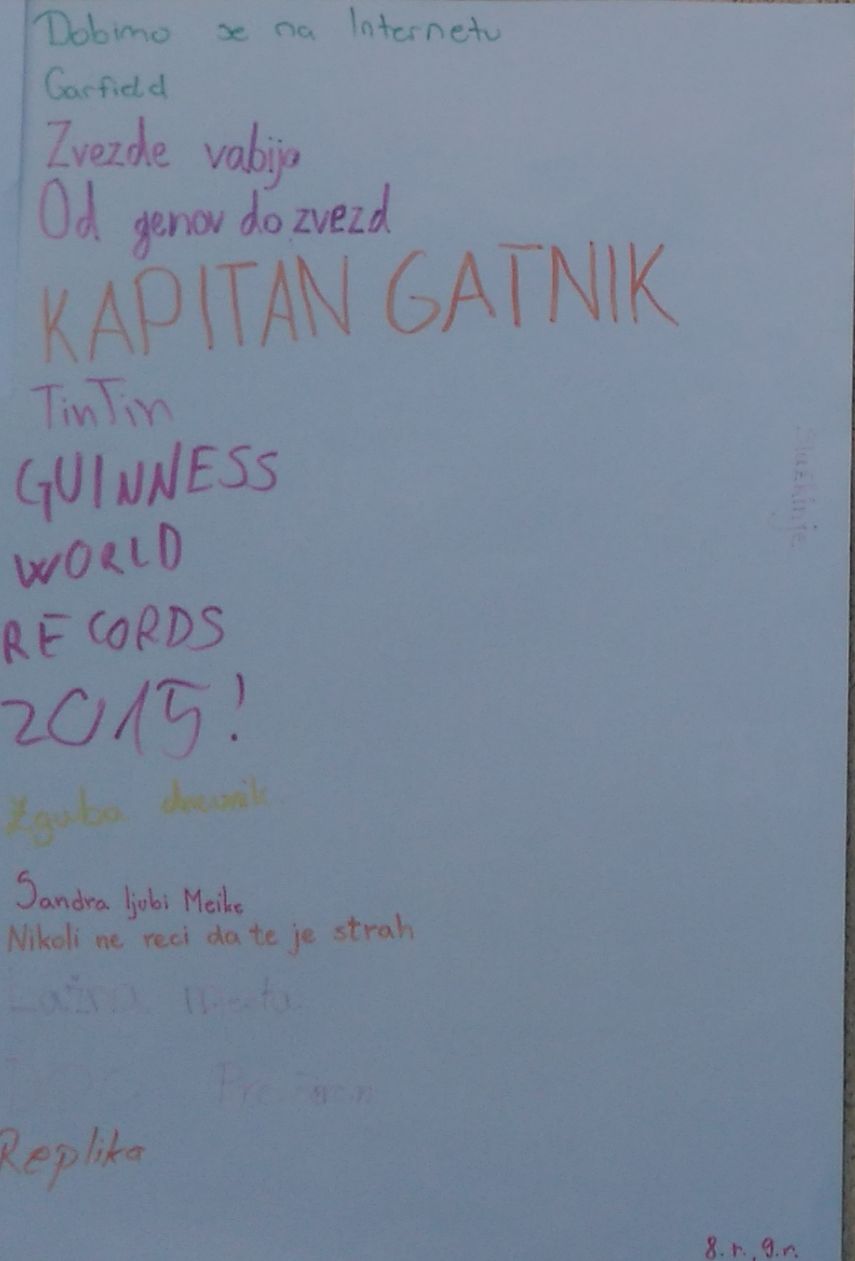 Dobimo se na Internetu
Garfield
Zvezde vabijo
Od genov do zvezd
KAPITAN GATNIK
TinTin
GUINNESS
WORLD
RECORDS
2015!
Zguba dnevnik
Sandra ljubi Meike
Nikoli ne reci da te je strah
Lažna mesta
Replika
Služkinje
8. r., 9. r.